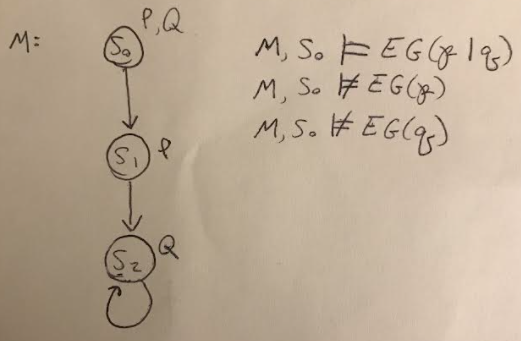 M:
P, Q
S₀
S₁ P
S₂ Q
M, S₀ ⊨ EG(p | q)
M, S₀ ⊭ EG(p)
M, S₀ ⊭ EG(q)